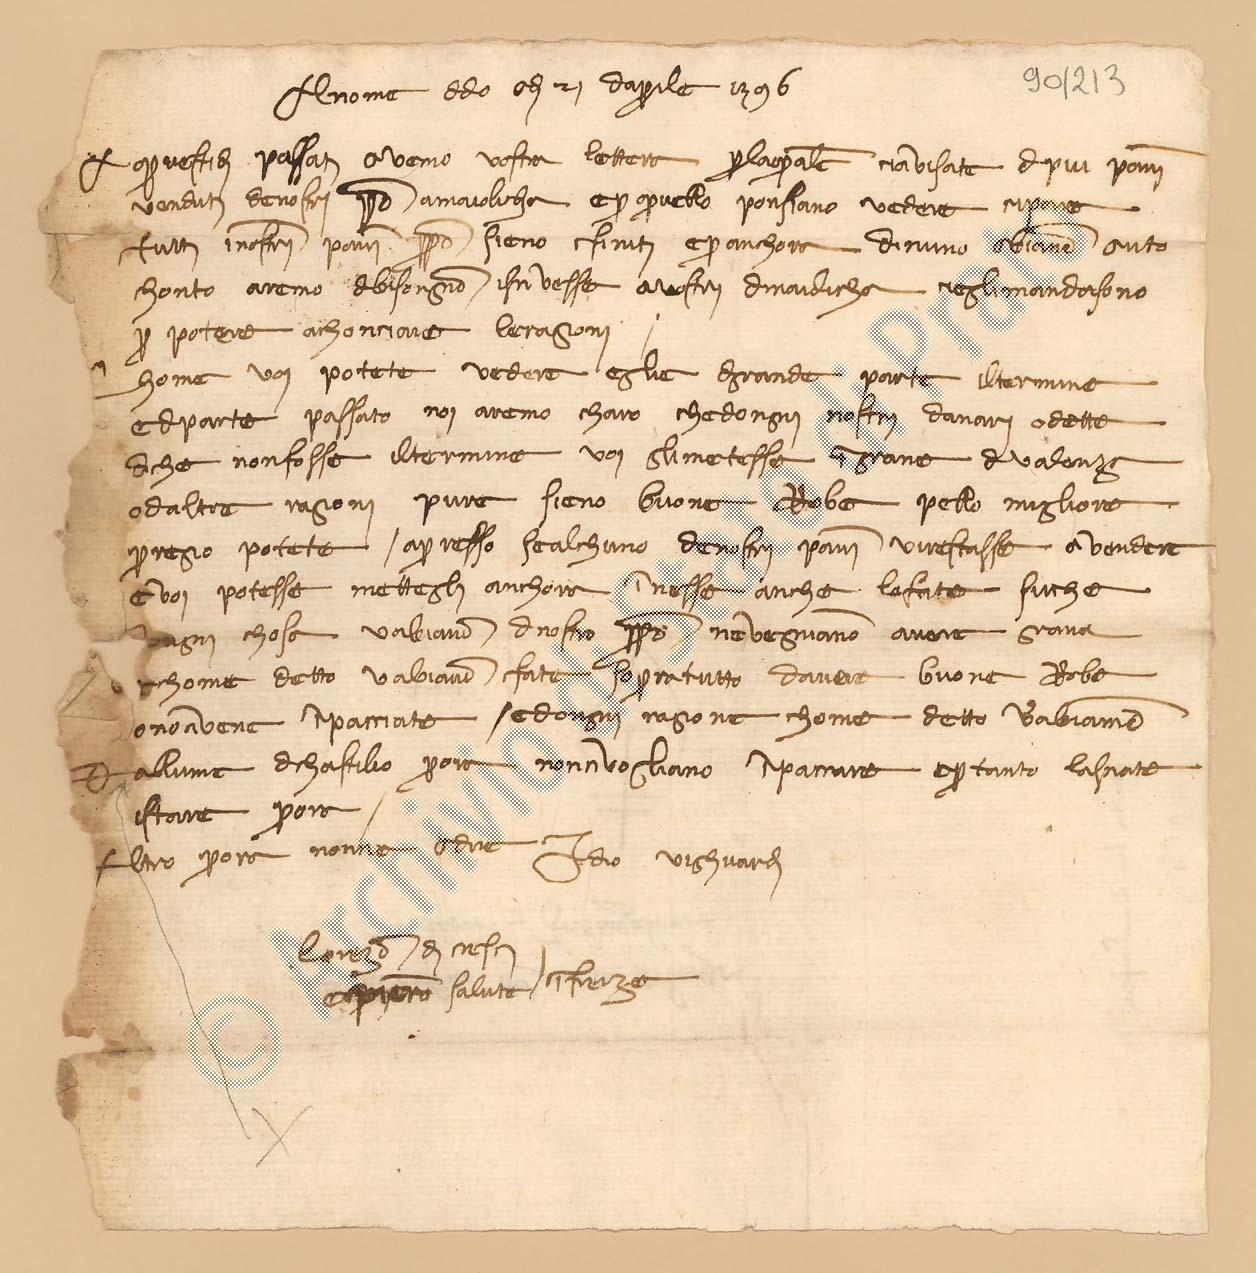 90/213
Al nome di dio a dì 21 d'aprile 1396
A questi dì passati avemo vostra lettera per la quale ci avisate di più panni
venduti de nostri a maiolicha e per quello ponsiano vedere ci pare
tutti i nostri panni sieno finiti e per anchora di niuno abiamo auto
chonto aremo di bisongno iscrivesse a vostri di maiolicha cieglimandasono
per potere achonciare le ragioni
chome voi potete vedere eglie di grande parte il termine
e di parte passato noi aremo charo che dongni nostri danari o dette
di che non fosse il termine voi gli metesse in grane di valenza
o daltre ragioni pure sieno buone Robe pello migliore
pregio potete / apresso se alchuno de nostri panni vi restasse a vendere
e voi potesse mettegli anchora in esse anche lo fate siche
dongni chosa v abiamo di nostro ne vegniano avere grana
e chome detto v abiamo fate sopratutto d avere buone Robe
o non avene inpacciate / e dongni ragione chome detto v abiamo
allume di chastilio per ora non ci vogliano inpacciare e per tanto lasciate
istare per ora /
Altro per ora nonn e a dire Idio vi ghuardi
Lorenzo di cresci
salute / in firenze
© Archivio di Stato di Prato